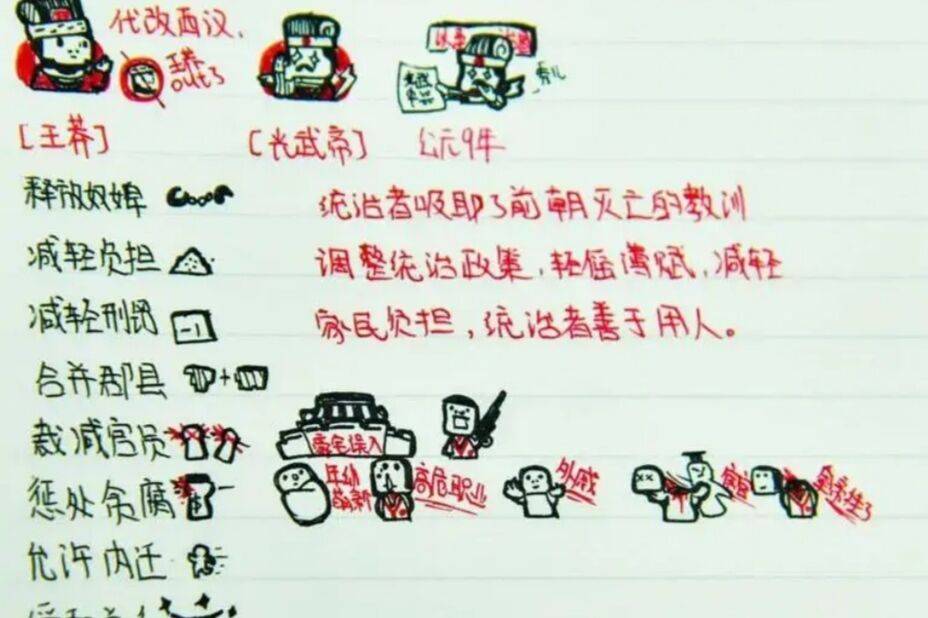 代改西汉，
王莽
out了
[王莽]
[光武帝] 公元9年
释放奴婢
统治者吸取了前朝灭亡的教训
减轻负担
调整统治政策，轻徭薄赋，减轻
减轻刑罚
-1
家民负担，统治者善于用人。
合并郡县
+
裁减官员
豪宅误入
惩处贪腐
年幼
高危职业
外戚
允许内迁